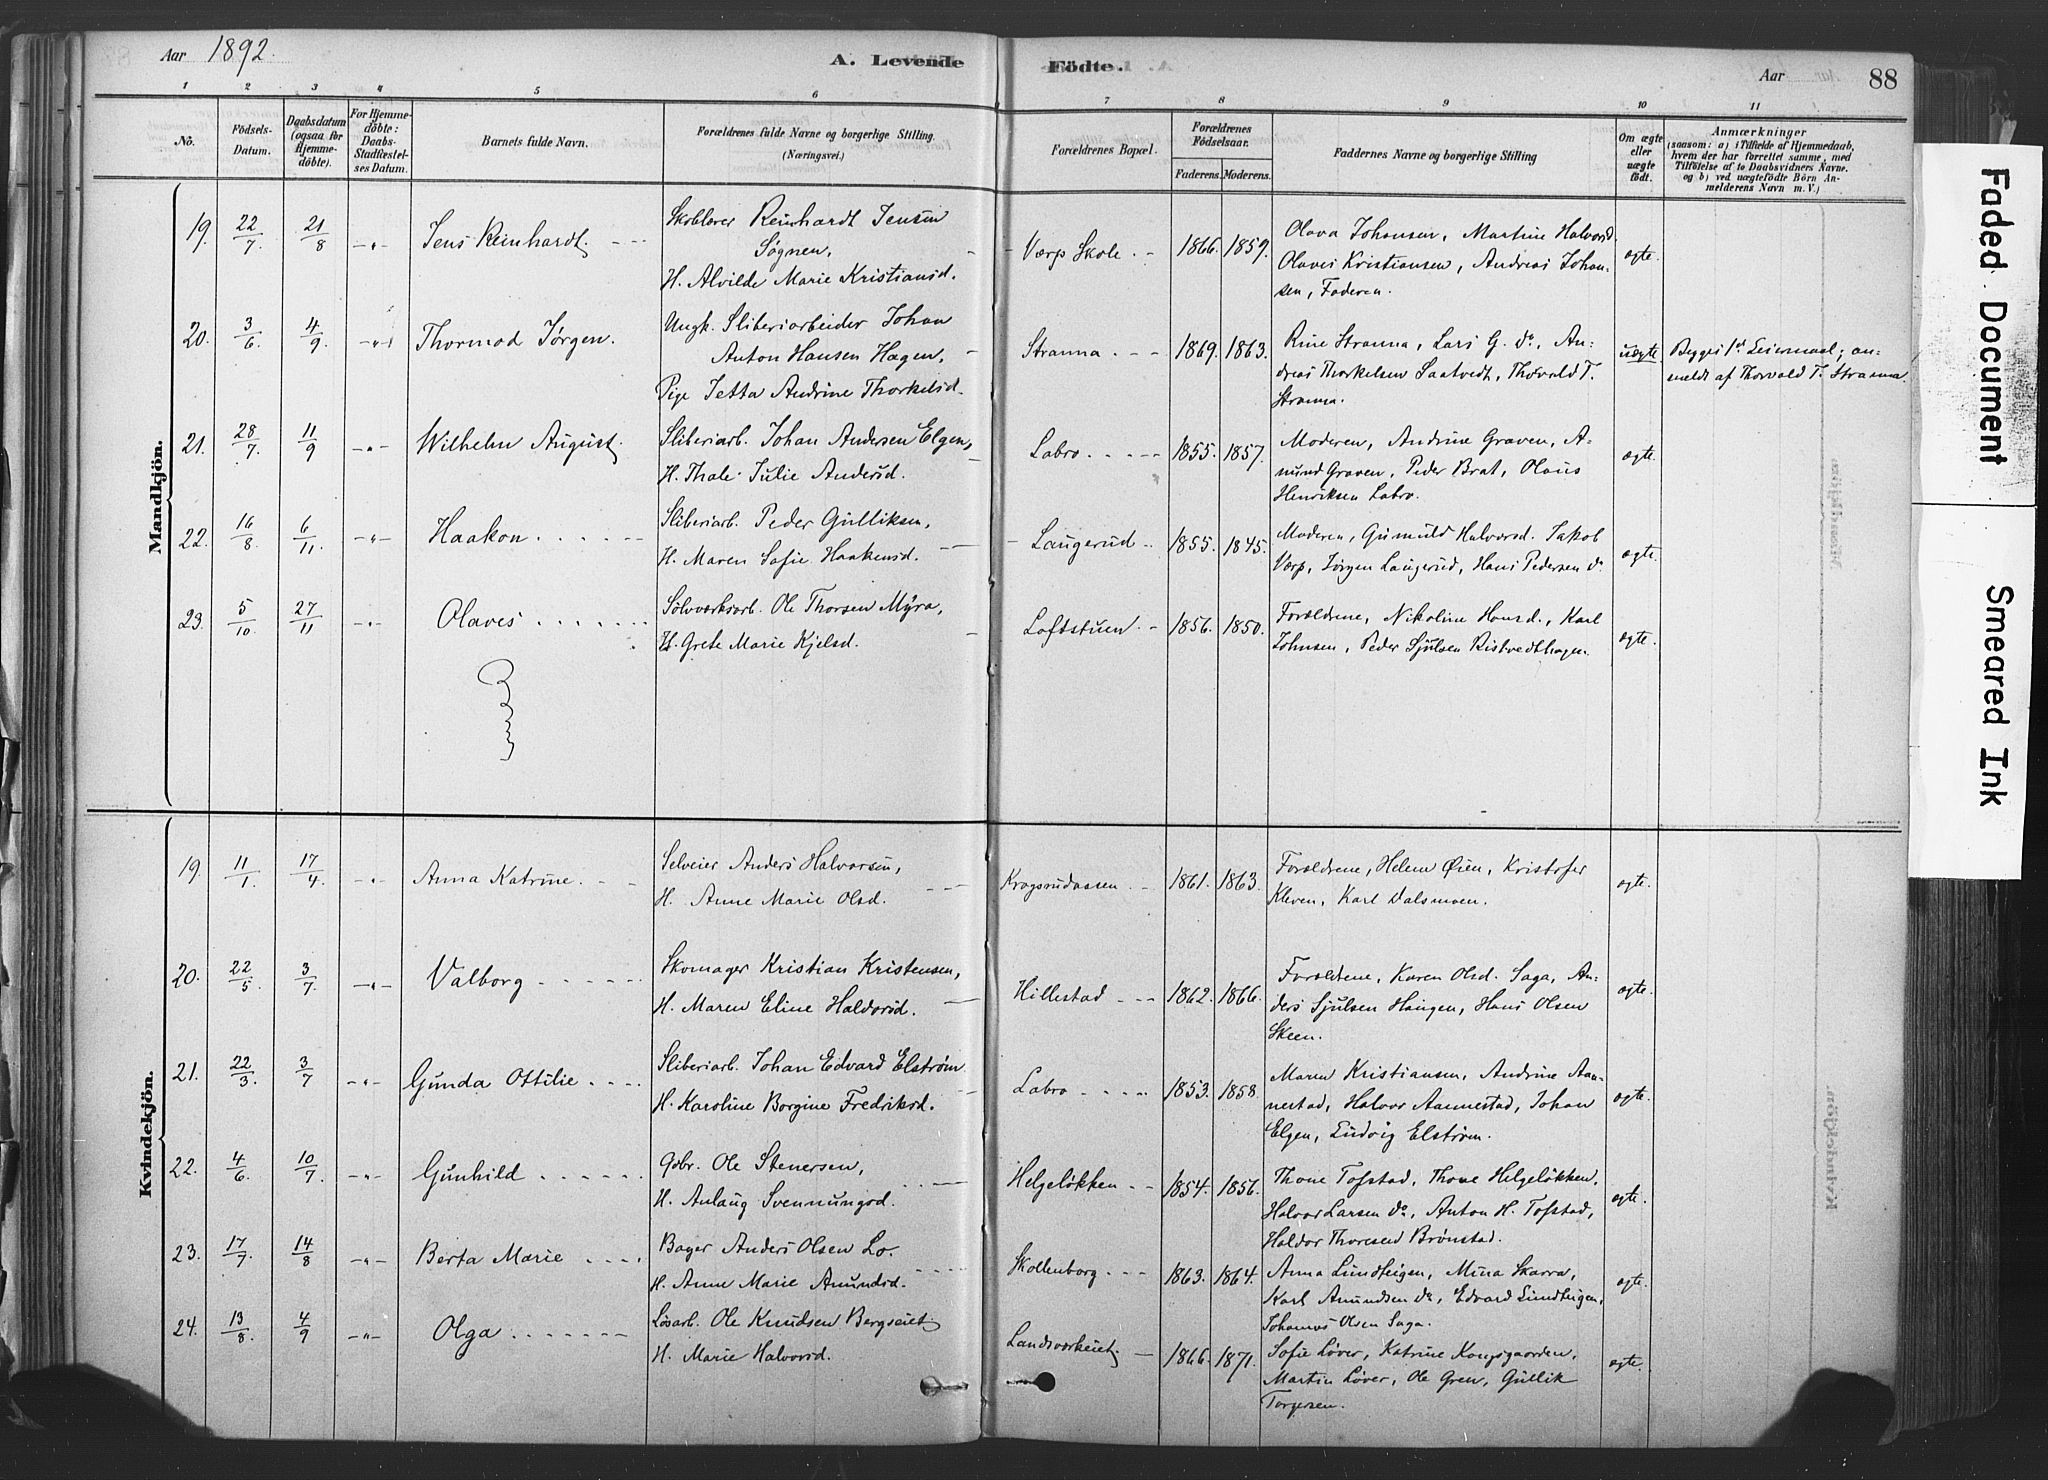 Aar 1892.
A. Levende
Födte.
Aar
88
1 2 3 4 5 6 7 8 9 10 11
No.
Födsels-
Datum.
Daabsdatum
(ogsaa for
Hjemme-
döbte).
For Hjemme-
döbte:
Daabs-
Stadfæstel-
ses Datum.
Barnets fulde Navn.
Forældrenes fulde Navne og borgerlige Stilling.
(Næringsvei.)
Forældrenes Bopæl.
Forældrenes
Födselsaar.
Faderens. Moderens.
Faddernes Navne og borgerlige Stilling
Om ægte
eller
uægte
födt.
Anmærkninger
(saasom: a) i Tilfælde af Hjemmedaab,
hvem der har forrettet samme, med
Tilföielse af to Daabsvidners Navne.
og b) ved uægtefödte Börn An-
melderens Navn m. V.)
Mandkjön.
19. 22/7 21/8 -"- Jens Reinhardt.
Skolelærer Reinhardt Jensen
Søgnen,
H. Alvilde Marie Kristiansd.
Værp Skole. 1866. 1859.
Olava Johansen, Martine Halvorsd.
Olaves Kristiansen, Andreas Johan-
sen, Faderen.
ægte.
20. 3/6 4/9 -"- Thormod Jørgen.
Ungk. Sliberiarbeider Johan
Anton Hansen Hagen,
Pige Jetta Andrine Thorkelsd.
Stranna. 1869. 1863.
Rine Stranna, Lars G. do, An-
dreas Thorkelsen Saatvedt, Thorvald T.
Stranna.
uægte.
Begges 1st Leiermaal; an-
meldt af Thorvald T. Stranna.
21. 28/7 11/9 -"- Wilhelm August.
Sliberiarb. Johan Andersen Elgen,
H. Thale Julie Andersd.
Labro. 1855. 1857.
Moderen, Andrine Graven, A-
mund Graven, Peder Brat, Olaus
Henriksen Labro.
ægte.
22. 16/8 6/11 -"- Haakon.
Sliberiarb. Peder Gulliksen,
H. Maren Sofie Haakensd.
Laugerud. 1855. 1845.
Moderen, Gunuld Halvorsd. Jakob
Værp, Jørgen Laugerud, Hans Pedersen do
ægte.
23. 5/10 27/11 -"- Olaves.
Sølvværksarb. Ole Thorsen Myra,
H. Grete Marie Kjelsd.
Loftstuen. 1856. 1850.
Forældrene, Nikoline Hansd., Karl
Johnsen, Peder Sjulsen Ristvedthagen.
ægte.
Kvindekjön.
19. 11/1 17/4 -"- Anna Katrine.
Selveier Anders Halvorsen,
H. Anne Marie Olsd.
Kragsrudaasen. 1861. 1863.
Forældrene, Helene Øien, Kristofer
Kleven, Karl Dalsmoen.
ægte.
20. 22/5 3/7 -"- Valborg
Skomager Kristian Kristensen,
H. Maren Eline Haldorsd.
Hillestad 1862. 1866.
Forældrene, Karen Olsd. Saga, An-
ders Sjulsen Haugen, Hans Olsen
Skeen.
ægte.
21. 22/3 3/7 -"- Gunda Ottilie.
Sliberiarb. Johan Edvard Elstrøm
H. Karoline Borgine Fredriksd.
Labro 1853. 1858.
Maren Kristiansen, Andrine Aan-
nestad, Halvor Aannestad, Johan
Elgen, Ludvig Elstrøm.
ægte.
22. 4/6 10/7 -"- Gunhild
Gdbr. Ole Stenersen,
H. Anlaug Svennungsd.
Helgeløkken 1854. 1856.
Thone Tofstad, Thone Helgeløkken,
Halvor Larsen do, Anton H. Tofstad,
Haldor Thoresen Brønstad.
ægte.
23. 17/7 14/8 -"- Berta Marie
Bager Anders Olsen Lo.
H. Anne Marie Amundsd.
Skollenborg 1863. 1864.
Anna Lundteigen, Mina Skarra,
Karl Amundsen do, Edvard Lundteigen,
Johannes Olsen Saga.
ægte.
24. 13/8 4/9 -"- Olga
Løsarb. Ole Knudsen Bergseiet,
H. Marie Halvorsd.
Landsværkeiet, 1866. 1871.
Sofie Løver, Katrine Kongsgaarden,
Martin Løver, Ole Gren, Gullik
Torgersen.
ægte.
Faded Document
Smeared Ink